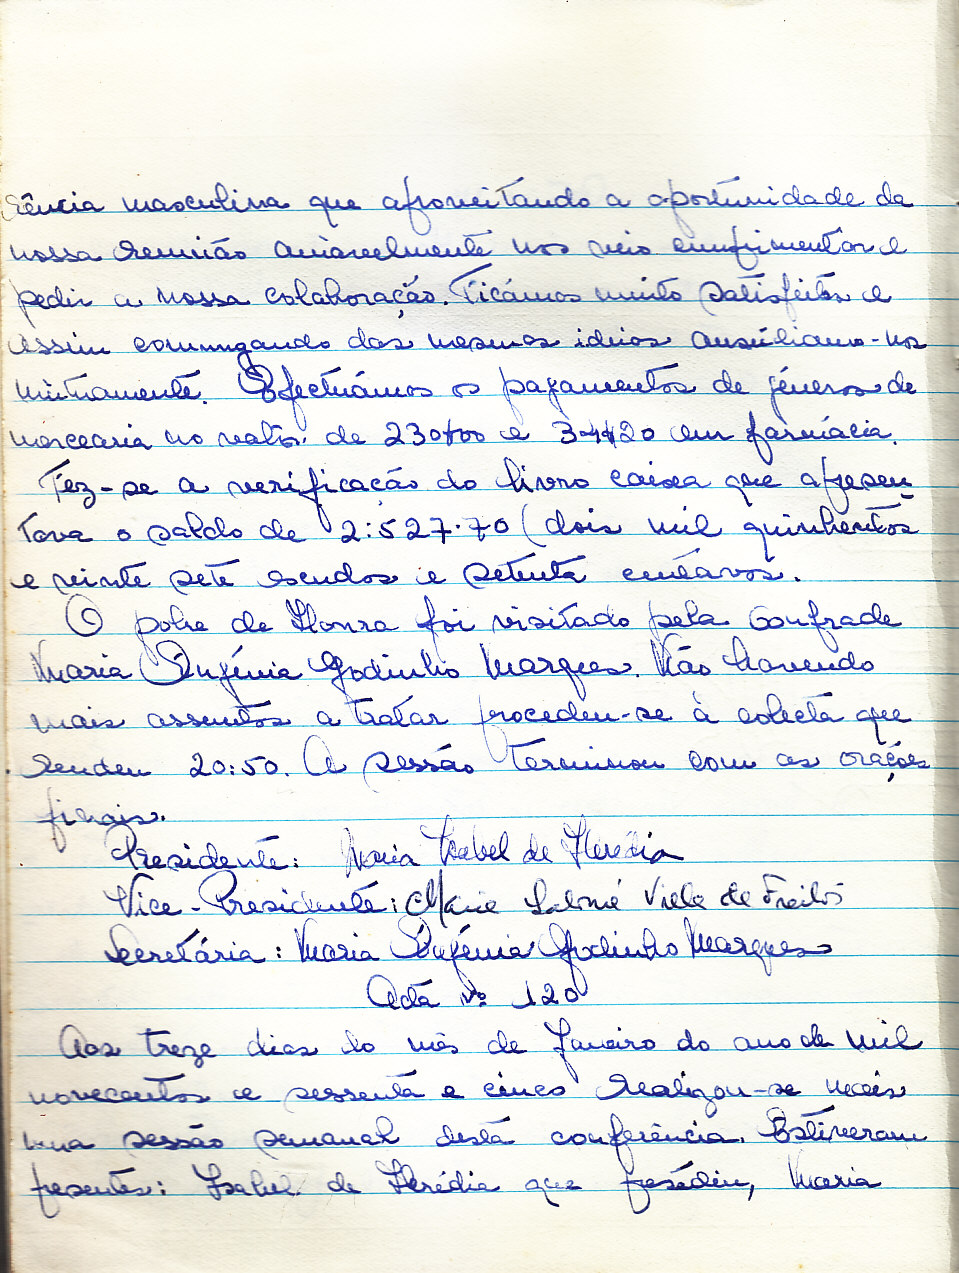 rência masculina que aproveitando a oportunidade da
nossa reunião amavelmente nos veio cumprimentar e
pedir a nossa colaboração. Ficámos muito satisfeitos e
assim comungando das mesmas ideias auxiliamo-nos
mutuamente. Efectuámos os pagamentos de géneros de
mercearia no valor de 230$00 e 34$20 em farmácia.
Fez-se a verificação do livro caixa que apresen
tava o saldo de 2:527.70 (dois mil quinhentos
e vinte sete escudos e setenta centavos.
O pobre de Honra foi visitado pela Confrade
Maria Eugénia Godinho Marques. Não havendo
mais assuntos a tratar procedeu-se à colecta que
rendeu 20:50. A sessão terminou com as orações
finais.
Presidente: Maria Isabel de Herédia
Vice-Presidente: Maria Salomé Viela de Freitas
Secretária: Maria Eugénia Godinho Marques
Acta nº 120
Aos treze dias do mês de Janeiro do ano de mil
novecentos e sessenta e cinco realizou-se mais
uma sessão semanal desta conferência. Estiveram
presentes: Isabel de Herédia que presediu, Maria